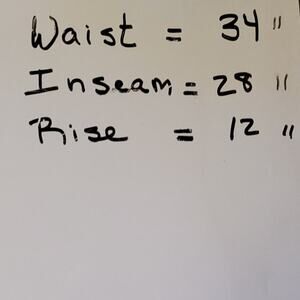 Waist = 34 "
Inseam = 28 "
Rise = 12 "